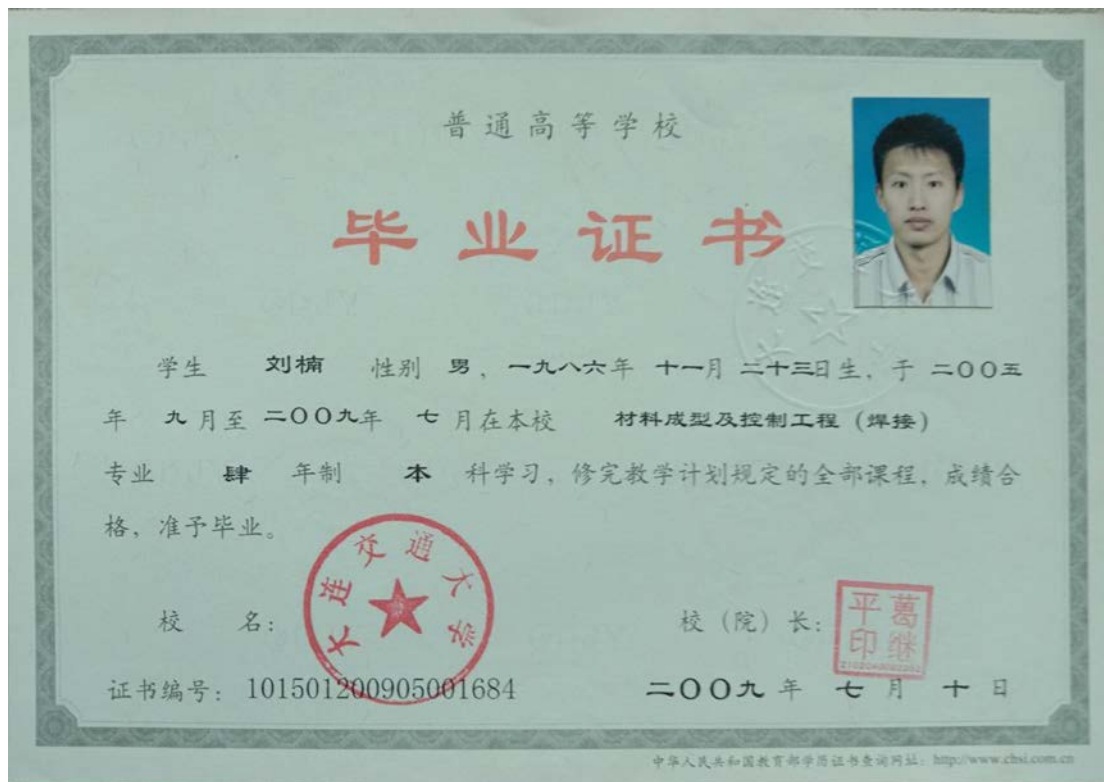 普通高等学校
毕业证书
学生 刘楠 性别 男，一九八六年 十一月 二十三日生，于 二〇〇五
年 九月至 二〇〇九年 七月在本校 材料成型及控制工程（焊接）
专业 肆 年制 本 科学习，修完教学计划规定的全部课程，成绩合
格，准予毕业。
大连交通大学
校 名：
校（院）长：
葛继平印
证书编号：101501200905001684
二〇〇九 年 七 月 十 日
中华人民共和国教育部学历证书查询网址：http://www.chsi.com.cn